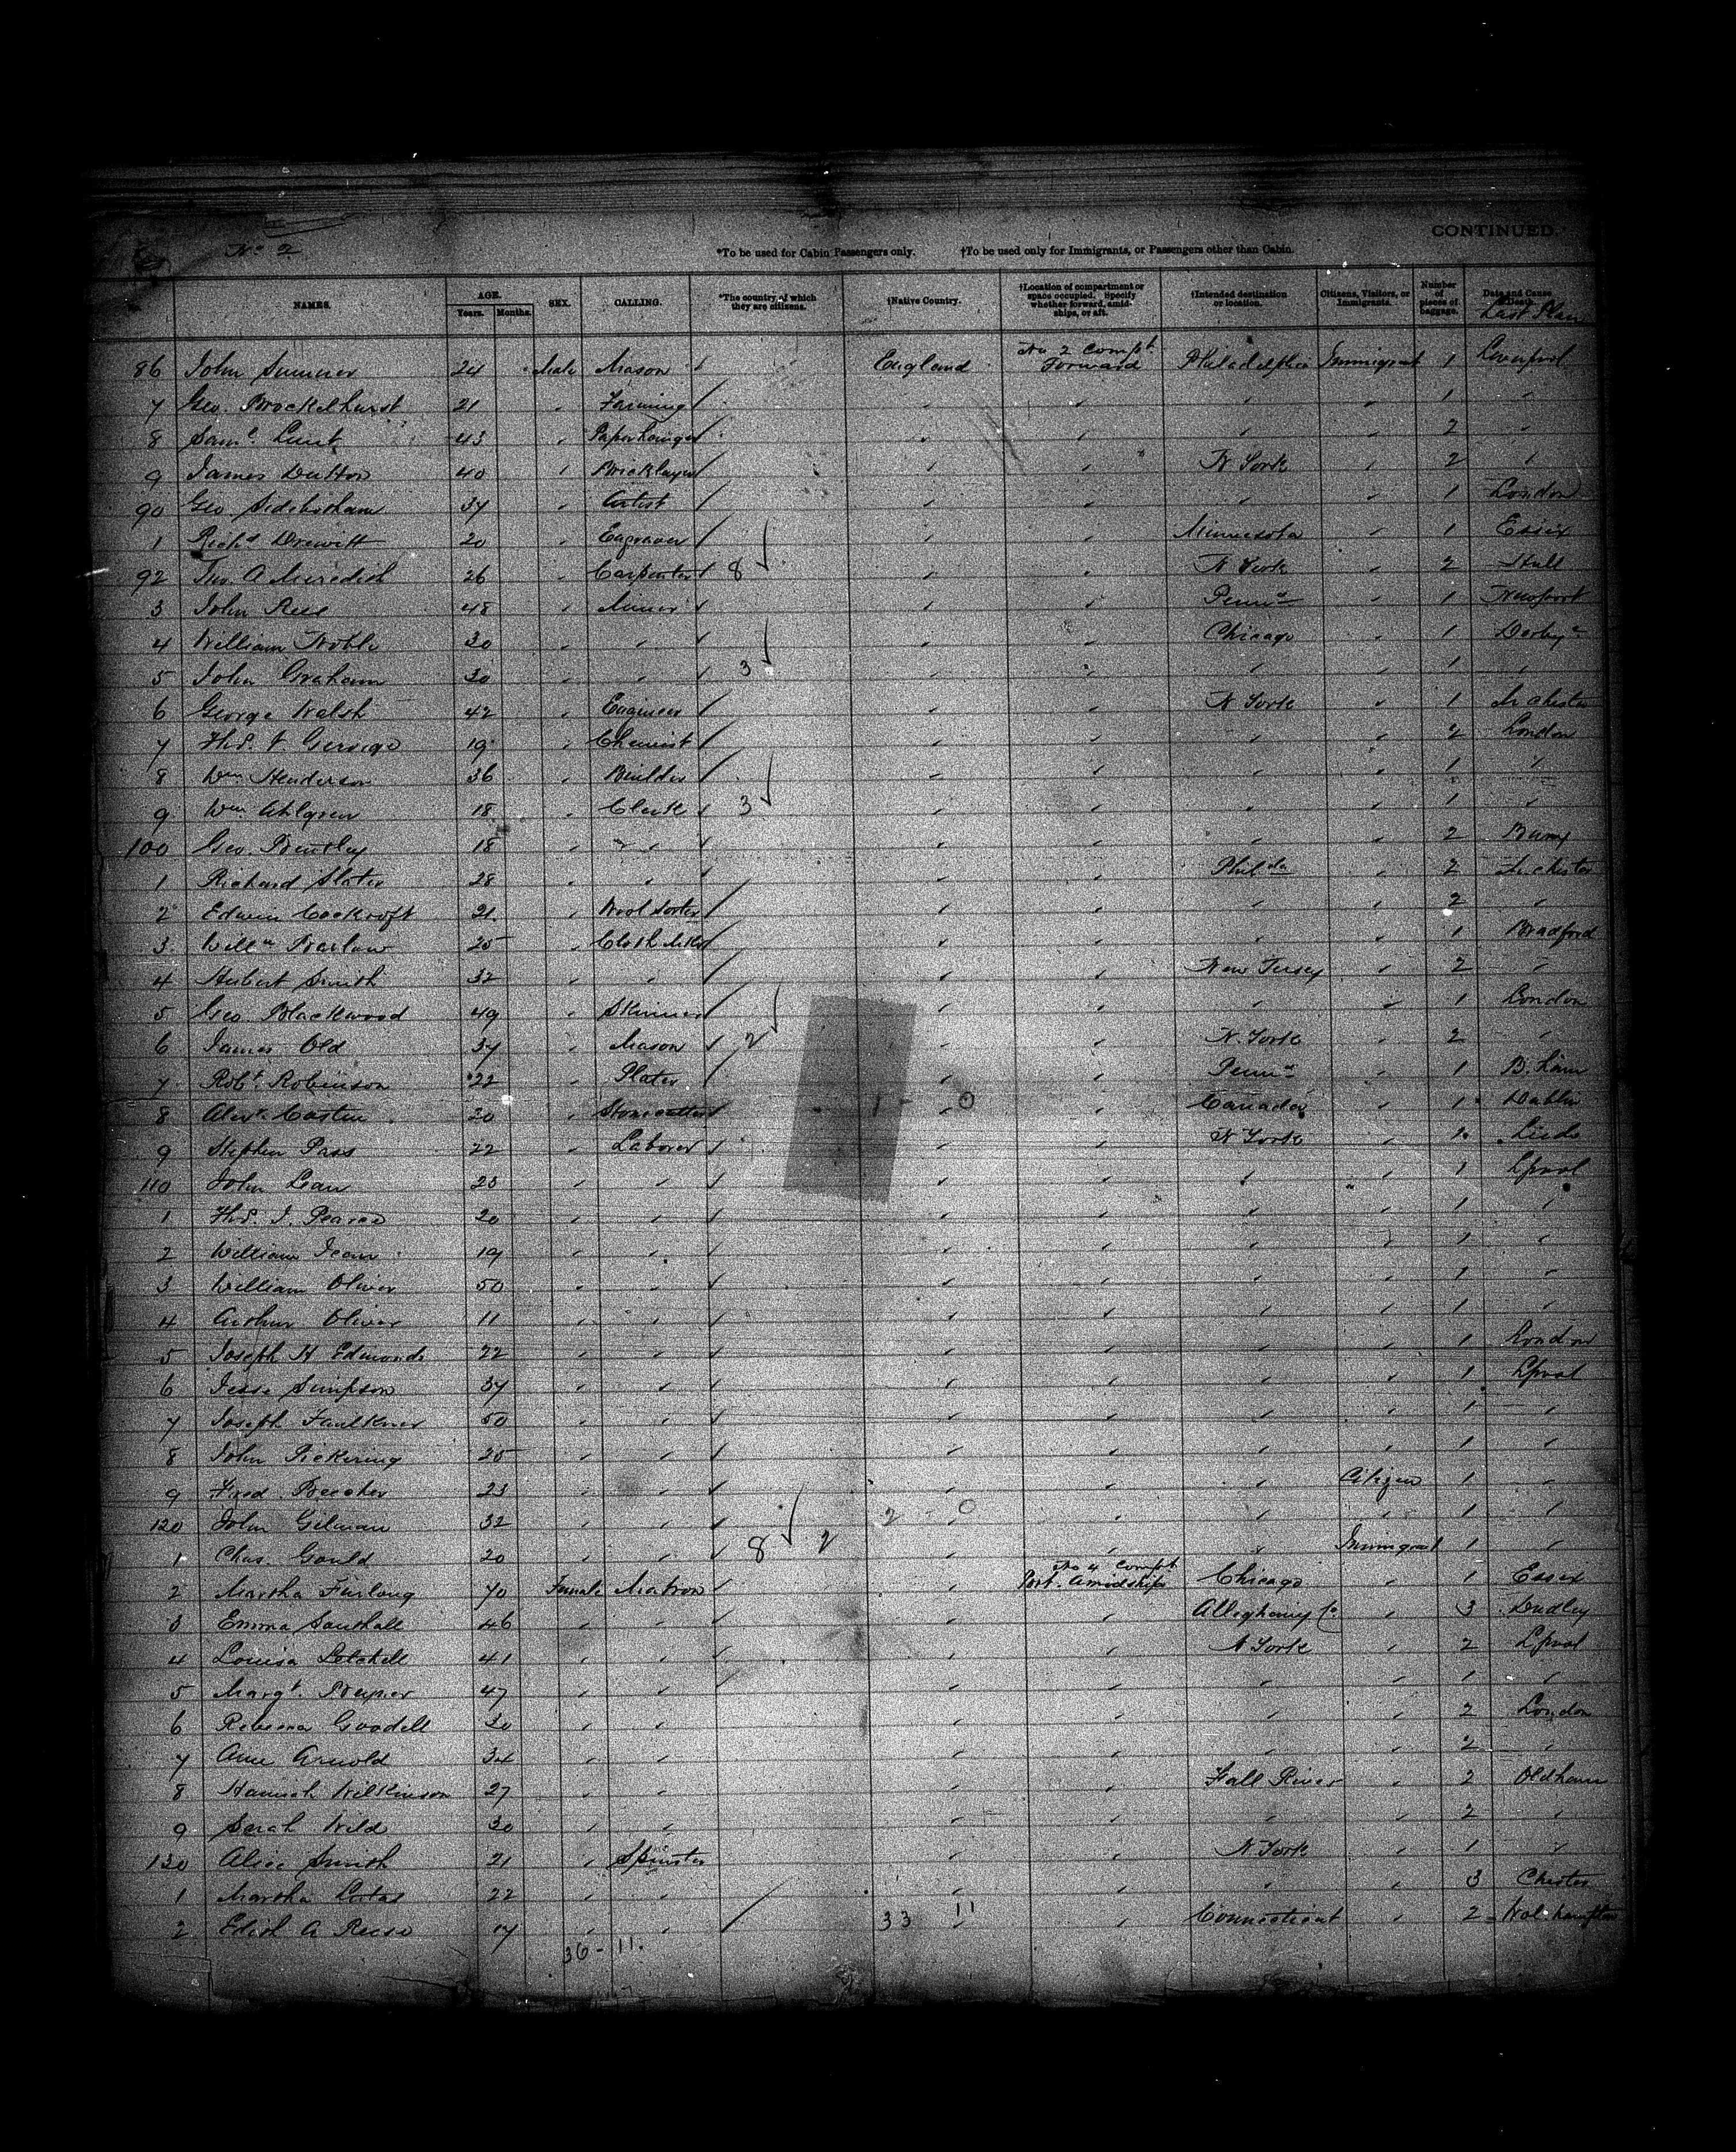 CONTINUED.
No 2
*To be used for Cabin Passengers only. †To be used only for Immigrants, or Passengers other than Cabin.
NAMES. AGE. Years. Months. SEX. CALLING. *The country of which they are citizens. †Native Country. †Location of compartment or space occupied. Specify whether forward, amidships, or aft. †Intended destination or location. Citizens, Visitors, or Immigrants. Number of pieces of baggage. Date and Cause Death. Last Place
86 John Sumner 24 Male Mason England No 2 Compt. Forward Philadelphia Immigrant 1 Liverpool
7 Geo. Brockelhurst 21 " Farming " " " " 1 "
8 Saml. Lunt 43 " Paperhanger " " " " 2 "
9 James Dutton 40 " Bricklayer " " N York " 2 "
90 Geo. Sidebotham 34 " Artist " " " " 1 London
1 Richd Drewitt 20 " Engraver " " Minnesota " 1 Essex
92 A Meredith 26 " Carpenter 8 " " N York " 2 Hull
3 John Rees 48 " Miner " " Penna " 1 Newport
4 William Noble 30 " " " " Chicago " 1 Derby
5 John Graham 30 " " 3 " " " " 1 "
6 George Walsh 42 " Engineer " " N York " 1 Mchester
7 Thos. 19 " Chemist " " " " 2 London
8 Wm Henderson 36 " Builder " " " " 1 "
9 Wm Ahlgren 18 " Clerk 3 " " " " 1 "
100 Geo. Bentley 18 " " " " " " 2 Bury
1 Richard Slater 28 " " " " Philda " 2
2 Edwin Cockroft 21 " Wool Sorter " " " " 2 "
3 Willm Barlow 25 " Cloth Mkr " " " " 1 Bradford
4 Hubert Smith 32 " " " " New Jersey " 2 "
5 Geo Blackwood 49 " Skinner " " " " 1 London
6 James Old 34 " Mason 2 " " N. York " 2 "
7 Robt. Robinson 22 " Plater " " Penna " 1 B.ham
8 Alexr. 20 " Stonecutter 1 0 " Canada " 1 Dublin
9 Stephen Pass 22 " Laborer " " N York " 1 Leeds
110 John 23 " " " " " " 1 Lpool
1 Thos. J. Pearce 20 " " " " " " 1 "
2 William 19 " " " " " " 1 "
3 William Oliver 50 " " " " " " 1 "
4 Arthur Oliver 11 " " " " " " 1 "
5 Joseph H Edmonds 22 " " " " " " 1 London
6 Jesse Simpson 34 " " " " " " 1 Lpool
7 Joseph Faulkner 50 " " " " " " 1 "
8 John Pickering 25 " " " " " " 1 "
9 Fred. 23 " " " " " Citizen 1 "
120 John Gilman 32 " " 2 0 " " " 1 "
1 Chas. Gould 20 " " 8 2 " " " Immigrant 1 "
2 Martha Furlong 70 Female Matron " No 4 Compt. Port. Amidships Chicago " 1 Essex
3 Emma Southall 46 " " " " Alleghany Co. " 3 Dudley
4 Louisa 41 " " " " N York " 2 Lpool
5 Margt. 47 " " " " " " 1 "
6 Rebecca Goodell 30 " " " " " " 2 London
7 Ann Arnold 34 " " " " " " 2 "
8 Hannah Wilkinson 27 " " " " Fall River " 2 Oldham
9 Sarah Wild 30 " " " " " " 2 "
130 Alice Smith 21 " Spinster " " N York " 1 "
1 Martha 22 " " " " " " 3 Chester
2 Edith A Reese 17 " " 33 11 " Connecticut " 2 Wol.hampton
36 - 11.